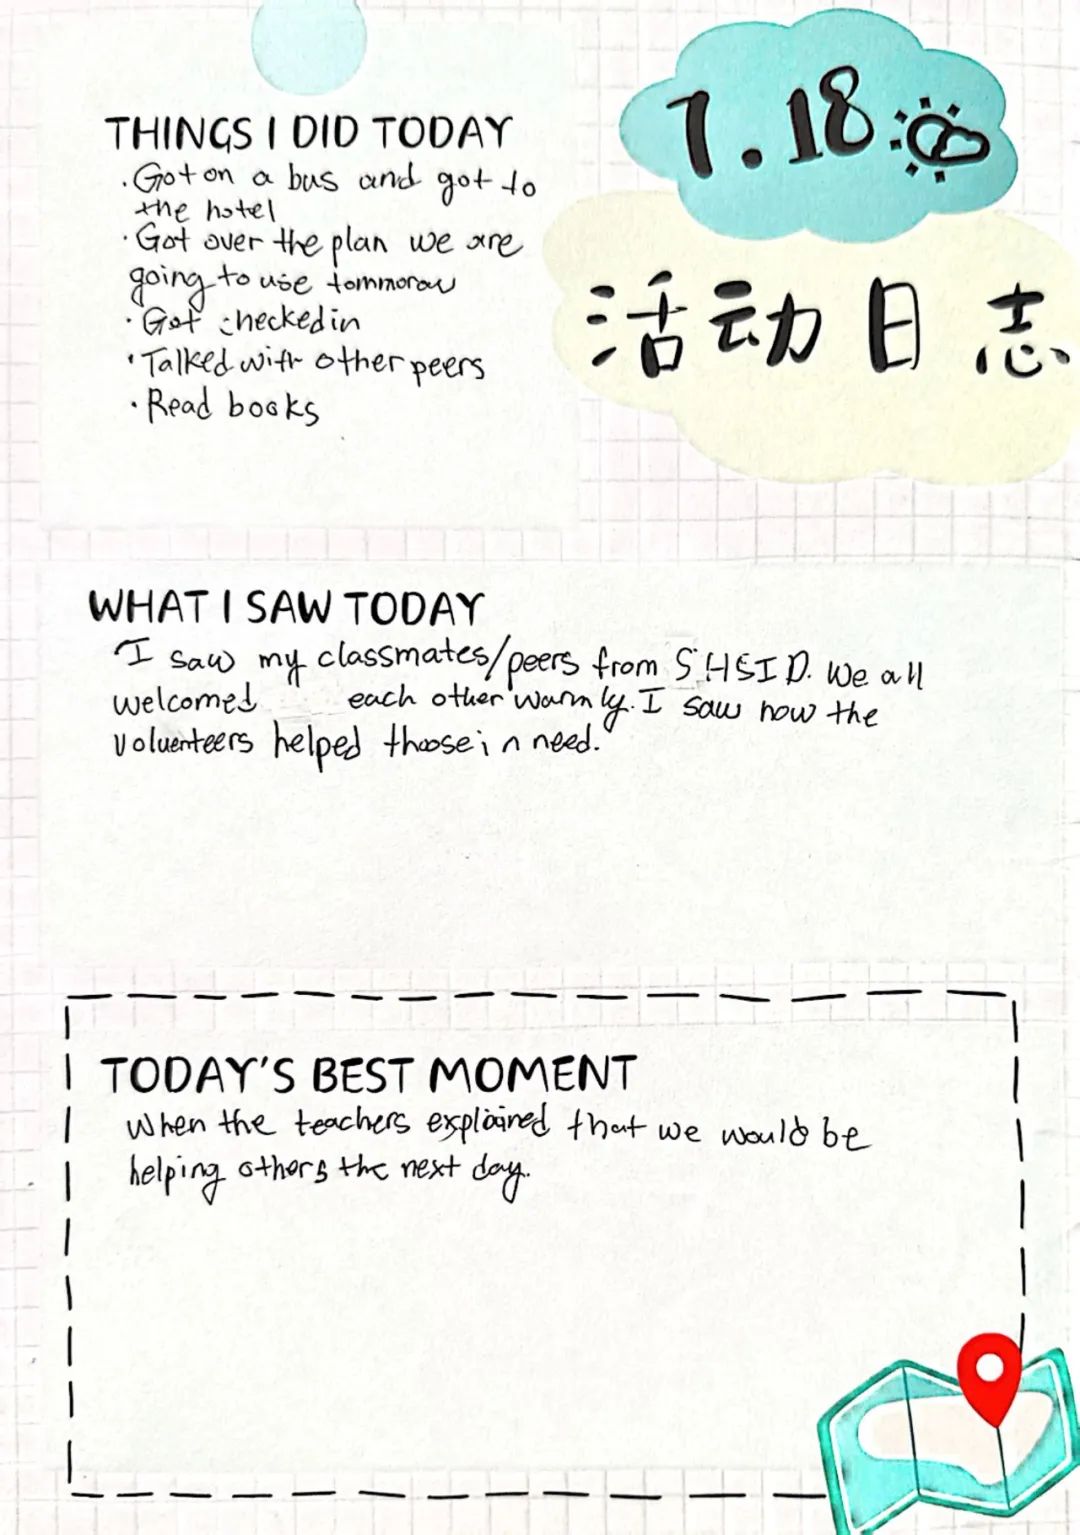 7.18
活动日志
THINGS I DID TODAY
· Got on a bus and got to
the hotel
· Got over the plan we are
going to use tommorow
· Got checked in
· Talked with other peers
· Read books
WHAT I SAW TODAY
I saw my classmates/peers from SHSID. We all
welcomed each other warmly. I saw how the
voluenteers helped thoose in need.
TODAY'S BEST MOMENT
When the teachers explained that we would be
helping others the next day.